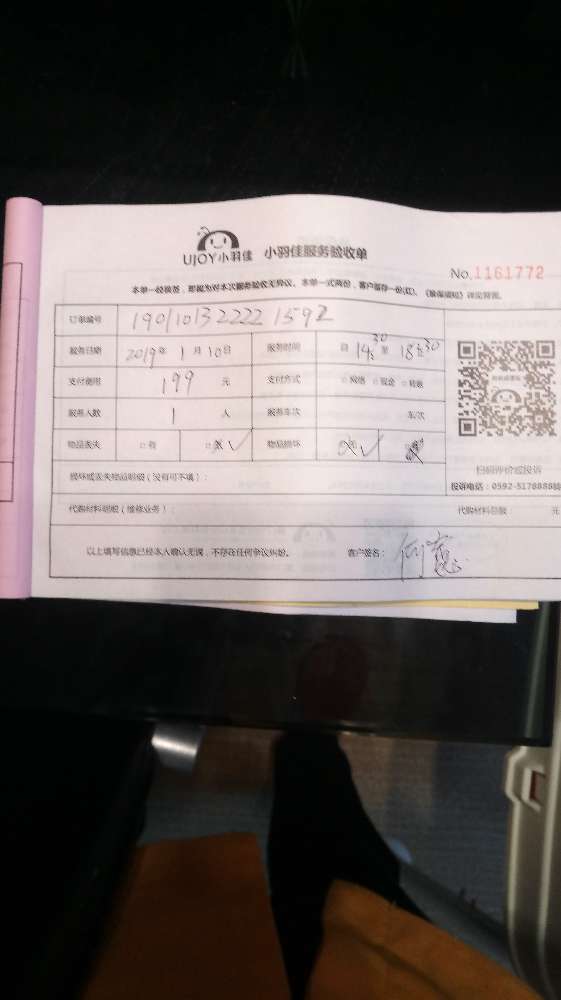 UJOY小羽佳 小羽佳服务验收单
No.1161772
本单一经核签,即视为对本次服务验收无异议。本单一式两份,客户留存一份(红)。《维保须知》详见背面。
订单编号 190110132222 1592
服务日期 2019年 1月 10日 服务时间 自 14:30 至 18:30
支付费用 199 元 支付方式 □网络 □现金 □转账
服务人数 1 人 服务车次 车次
物品丢失 □有 □无✓ 物品损坏 ✓
损坏或丢失物品明细(没有可不填):
扫码评价或投诉
投诉电话:0592-5178888
代购材料明细(维修业务): 代购材料总额 元
以上填写信息已经本人确认无误,不存在任何争议纠纷。 客户签名: